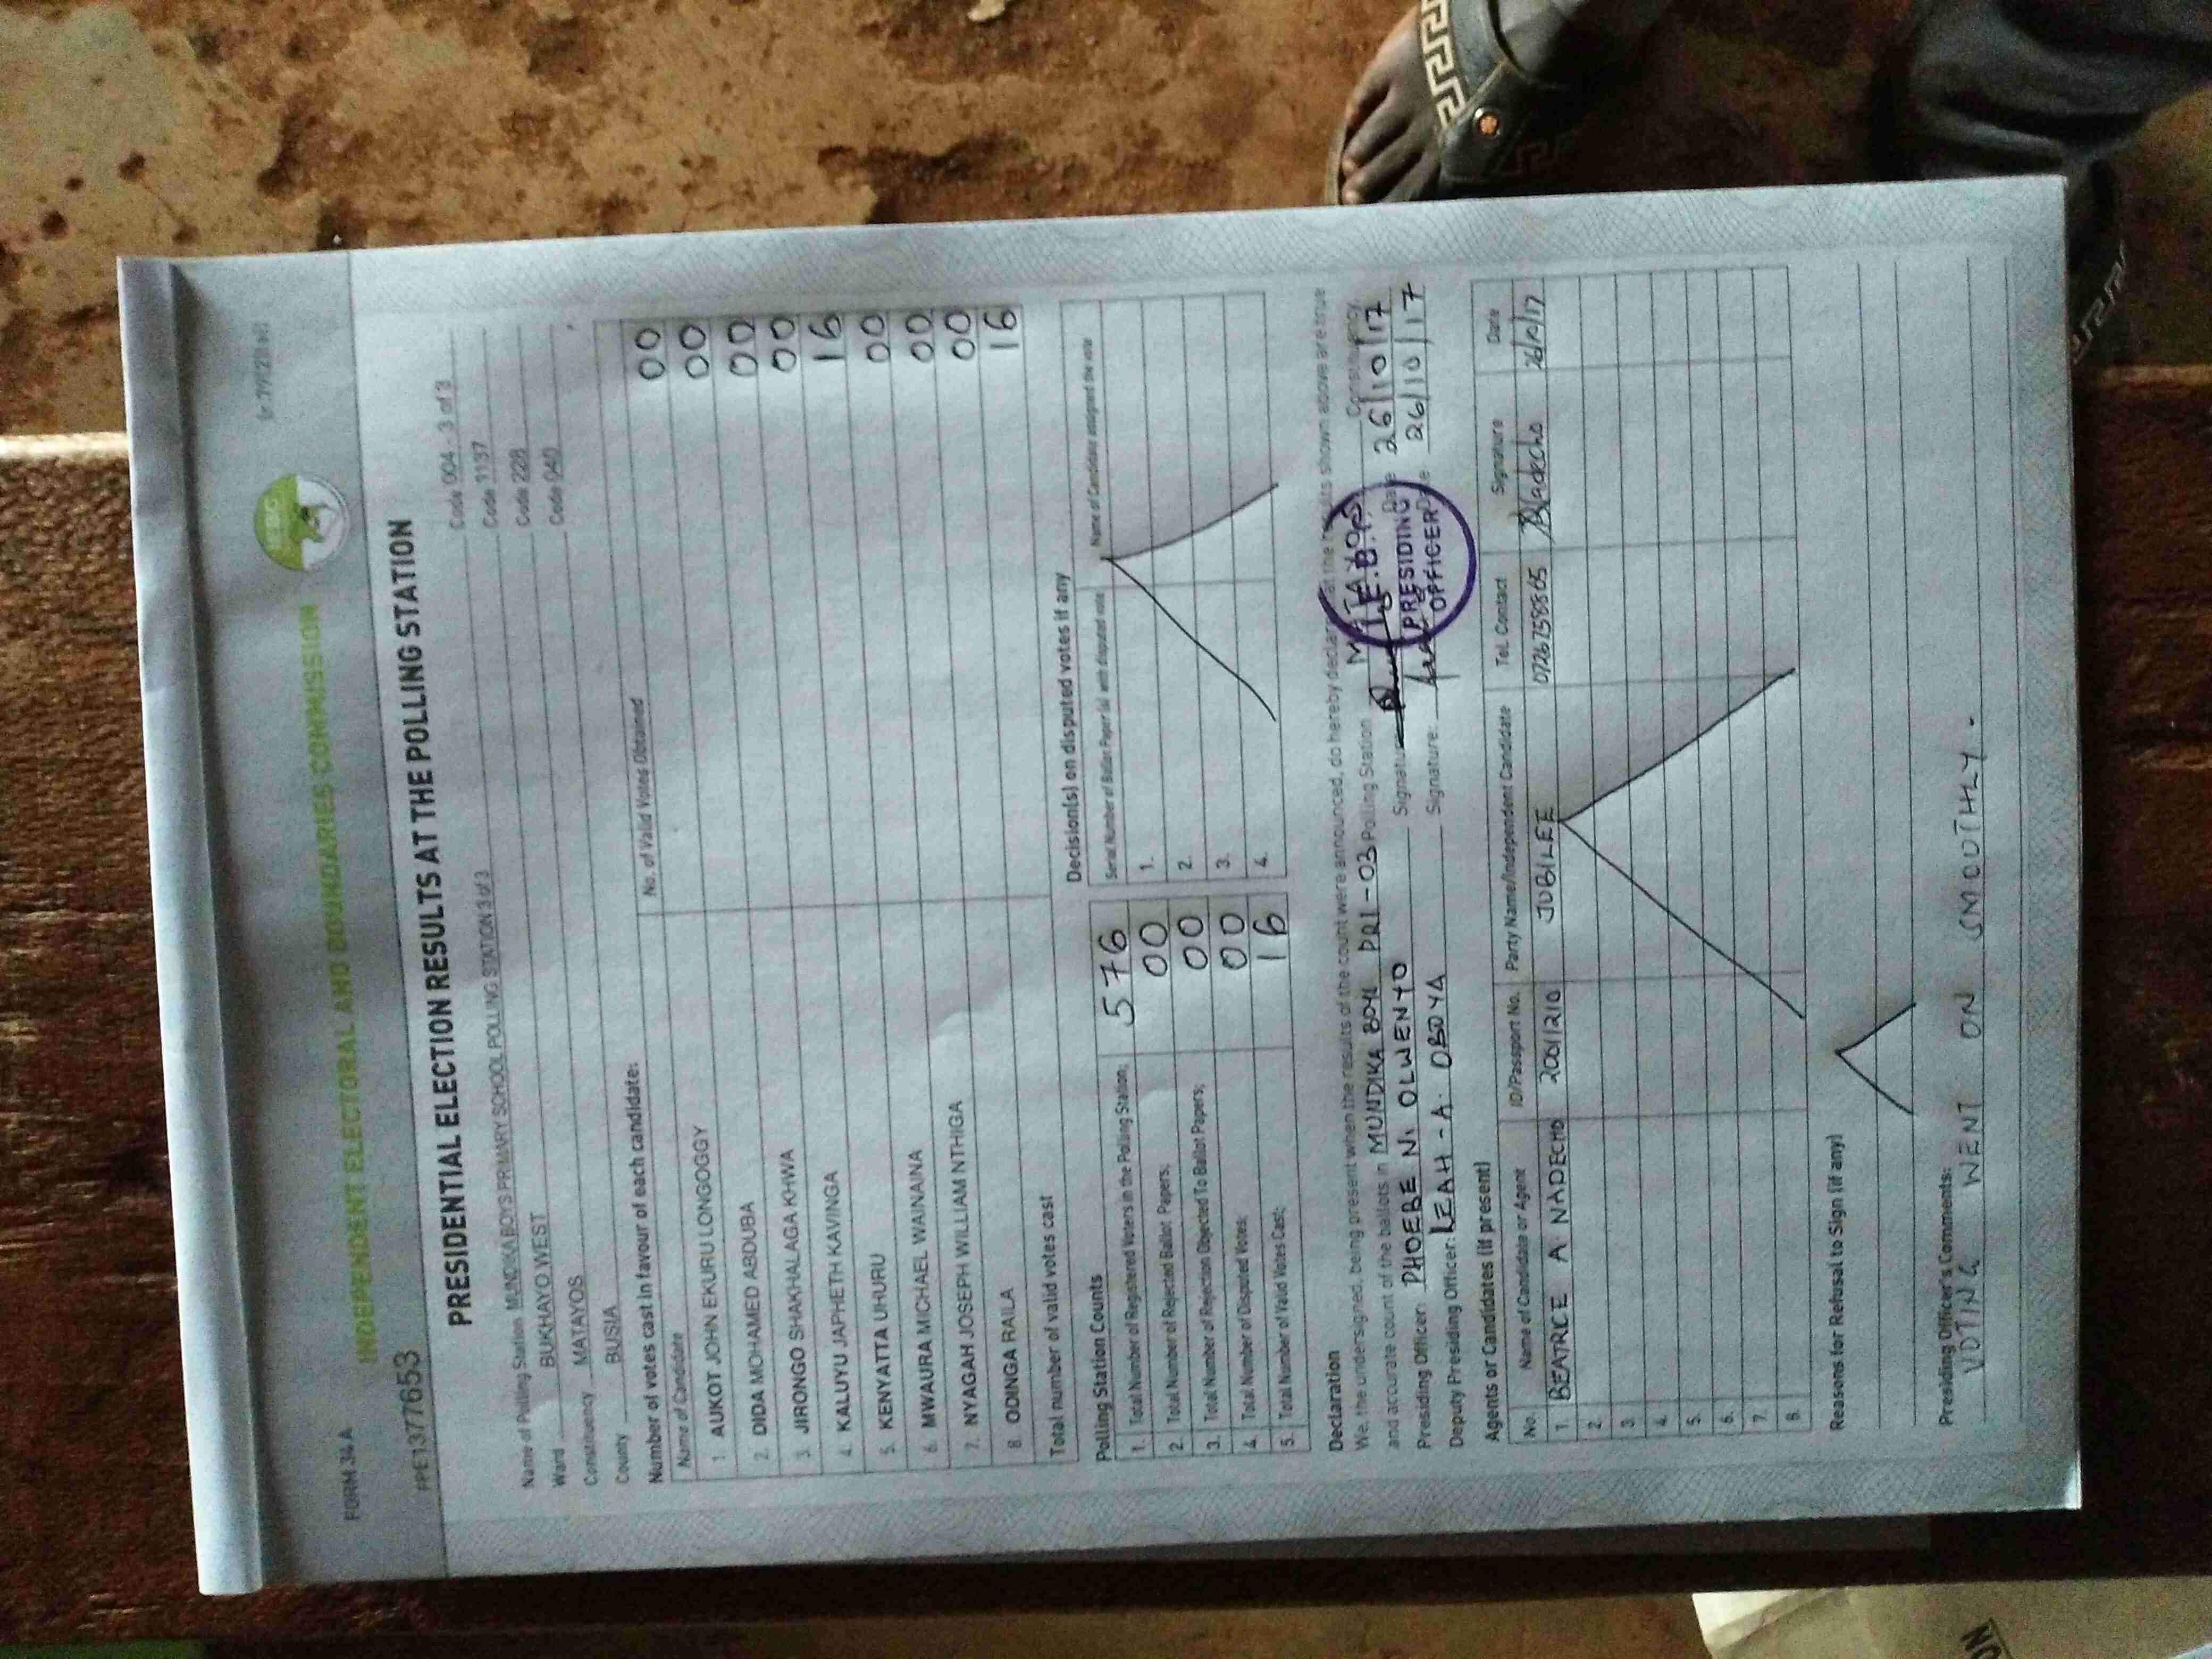 FORM 34A
INDEPENDENT ELECTORAL AND BOUNDARIES COMMISSION
IEBC
FPE1377653
PRESIDENTIAL ELECTION RESULTS AT THE POLLING STATION
Name of Polling Station MUNDIKA BOYS PRIMARY SCHOOL POLLING STATION 3 of 3 Code 004 - 3 of 3
Ward BUKHAYO WEST Code 1137
Constituency MATAYOS Code 228
County BUSIA Code 040
Number of votes cast in favour of each candidate:
Name of Candidate No. of Valid Votes Obtained
1 AUKOT JOHN EKURU LONGOGGY 00
2. DIDA MOHAMED ABDUBA 00
3. JIRONGO SHAKHALAGA KHWA 00
4. KALUYU JAPHETH KAVINGA 00
5. KENYATTA UHURU 16
6. MWAURA MICHAEL WAINAINA 00
7. NYAGAH JOSEPH WILLIAM NTHIGA 00
8. ODINGA RAILA 00
Total number of valid votes cast 16
Polling Station Counts
1. Total Number of Registered Voters in the Polling Station; 576
2. Total Number of Rejected Ballot Papers; 00
3. Total Number of Rejection Objected To Ballot Papers; 00
4. Total Number of Disputed Votes; 00
5. Total Number of Valid Votes Cast; 16
Decision(s) on disputed votes if any
Serial Number of Ballot Paper (s) with disputed vote Name of Candidate assigned the vote
1.
2.
3.
4.
Declaration
We, the undersigned, being present when the results of the count were announced, do hereby declare that the results shown above are true
and accurate count of the ballots in MUNDIKA BOYS PRI - 03 Polling Station MATAYOS Constituency.
Presiding Officer: PHOEBE N. OLWENYO Signature: Date 26/10/17
Deputy Presiding Officer: LEAH - A. OBOYA Signature: Date 26/10/17
I.E.B.C.
PRESIDING
OFFICER
Agents or Candidates (if present)
No. Name of Candidate or Agent ID/Passport No. Party Name/Independent Candidate Tel. Contact Signature Date
1. BEATRICE A NADECHO 20011210 JUBILEE 0726758865 BNadecho 26/10/17
2
3.
4.
5.
6.
7.
8.
Reasons for Refusal to Sign (if any)
Presiding Officer's Comments:
VOTING WENT ON SMOOTHLY.